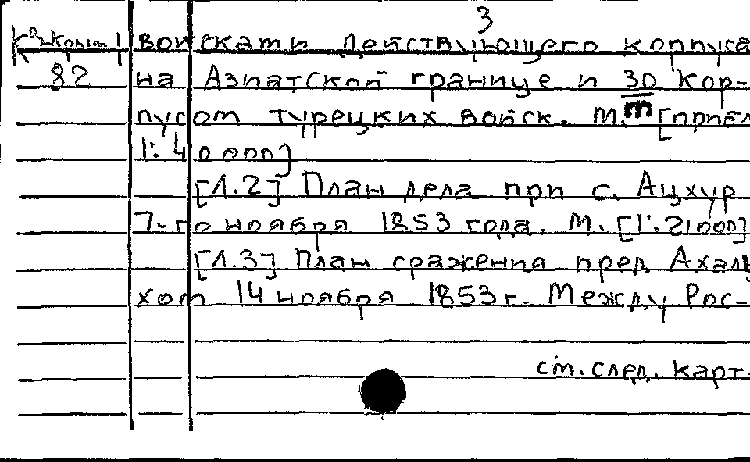 3
войсками действующего корпуса
82 на Азиатской границе и 30 кор-
пусом турецких войск. М. [прибл
1:40000]
[Л.2] План дела при с. Ацхур
7-го ноября 1853 года. М. [1:21000]
[Л.3] План сражения пред Ахалц
хом 14 ноября 1853 г. Между Рос-
см. след. карт.